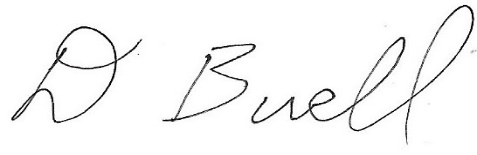 D Buell